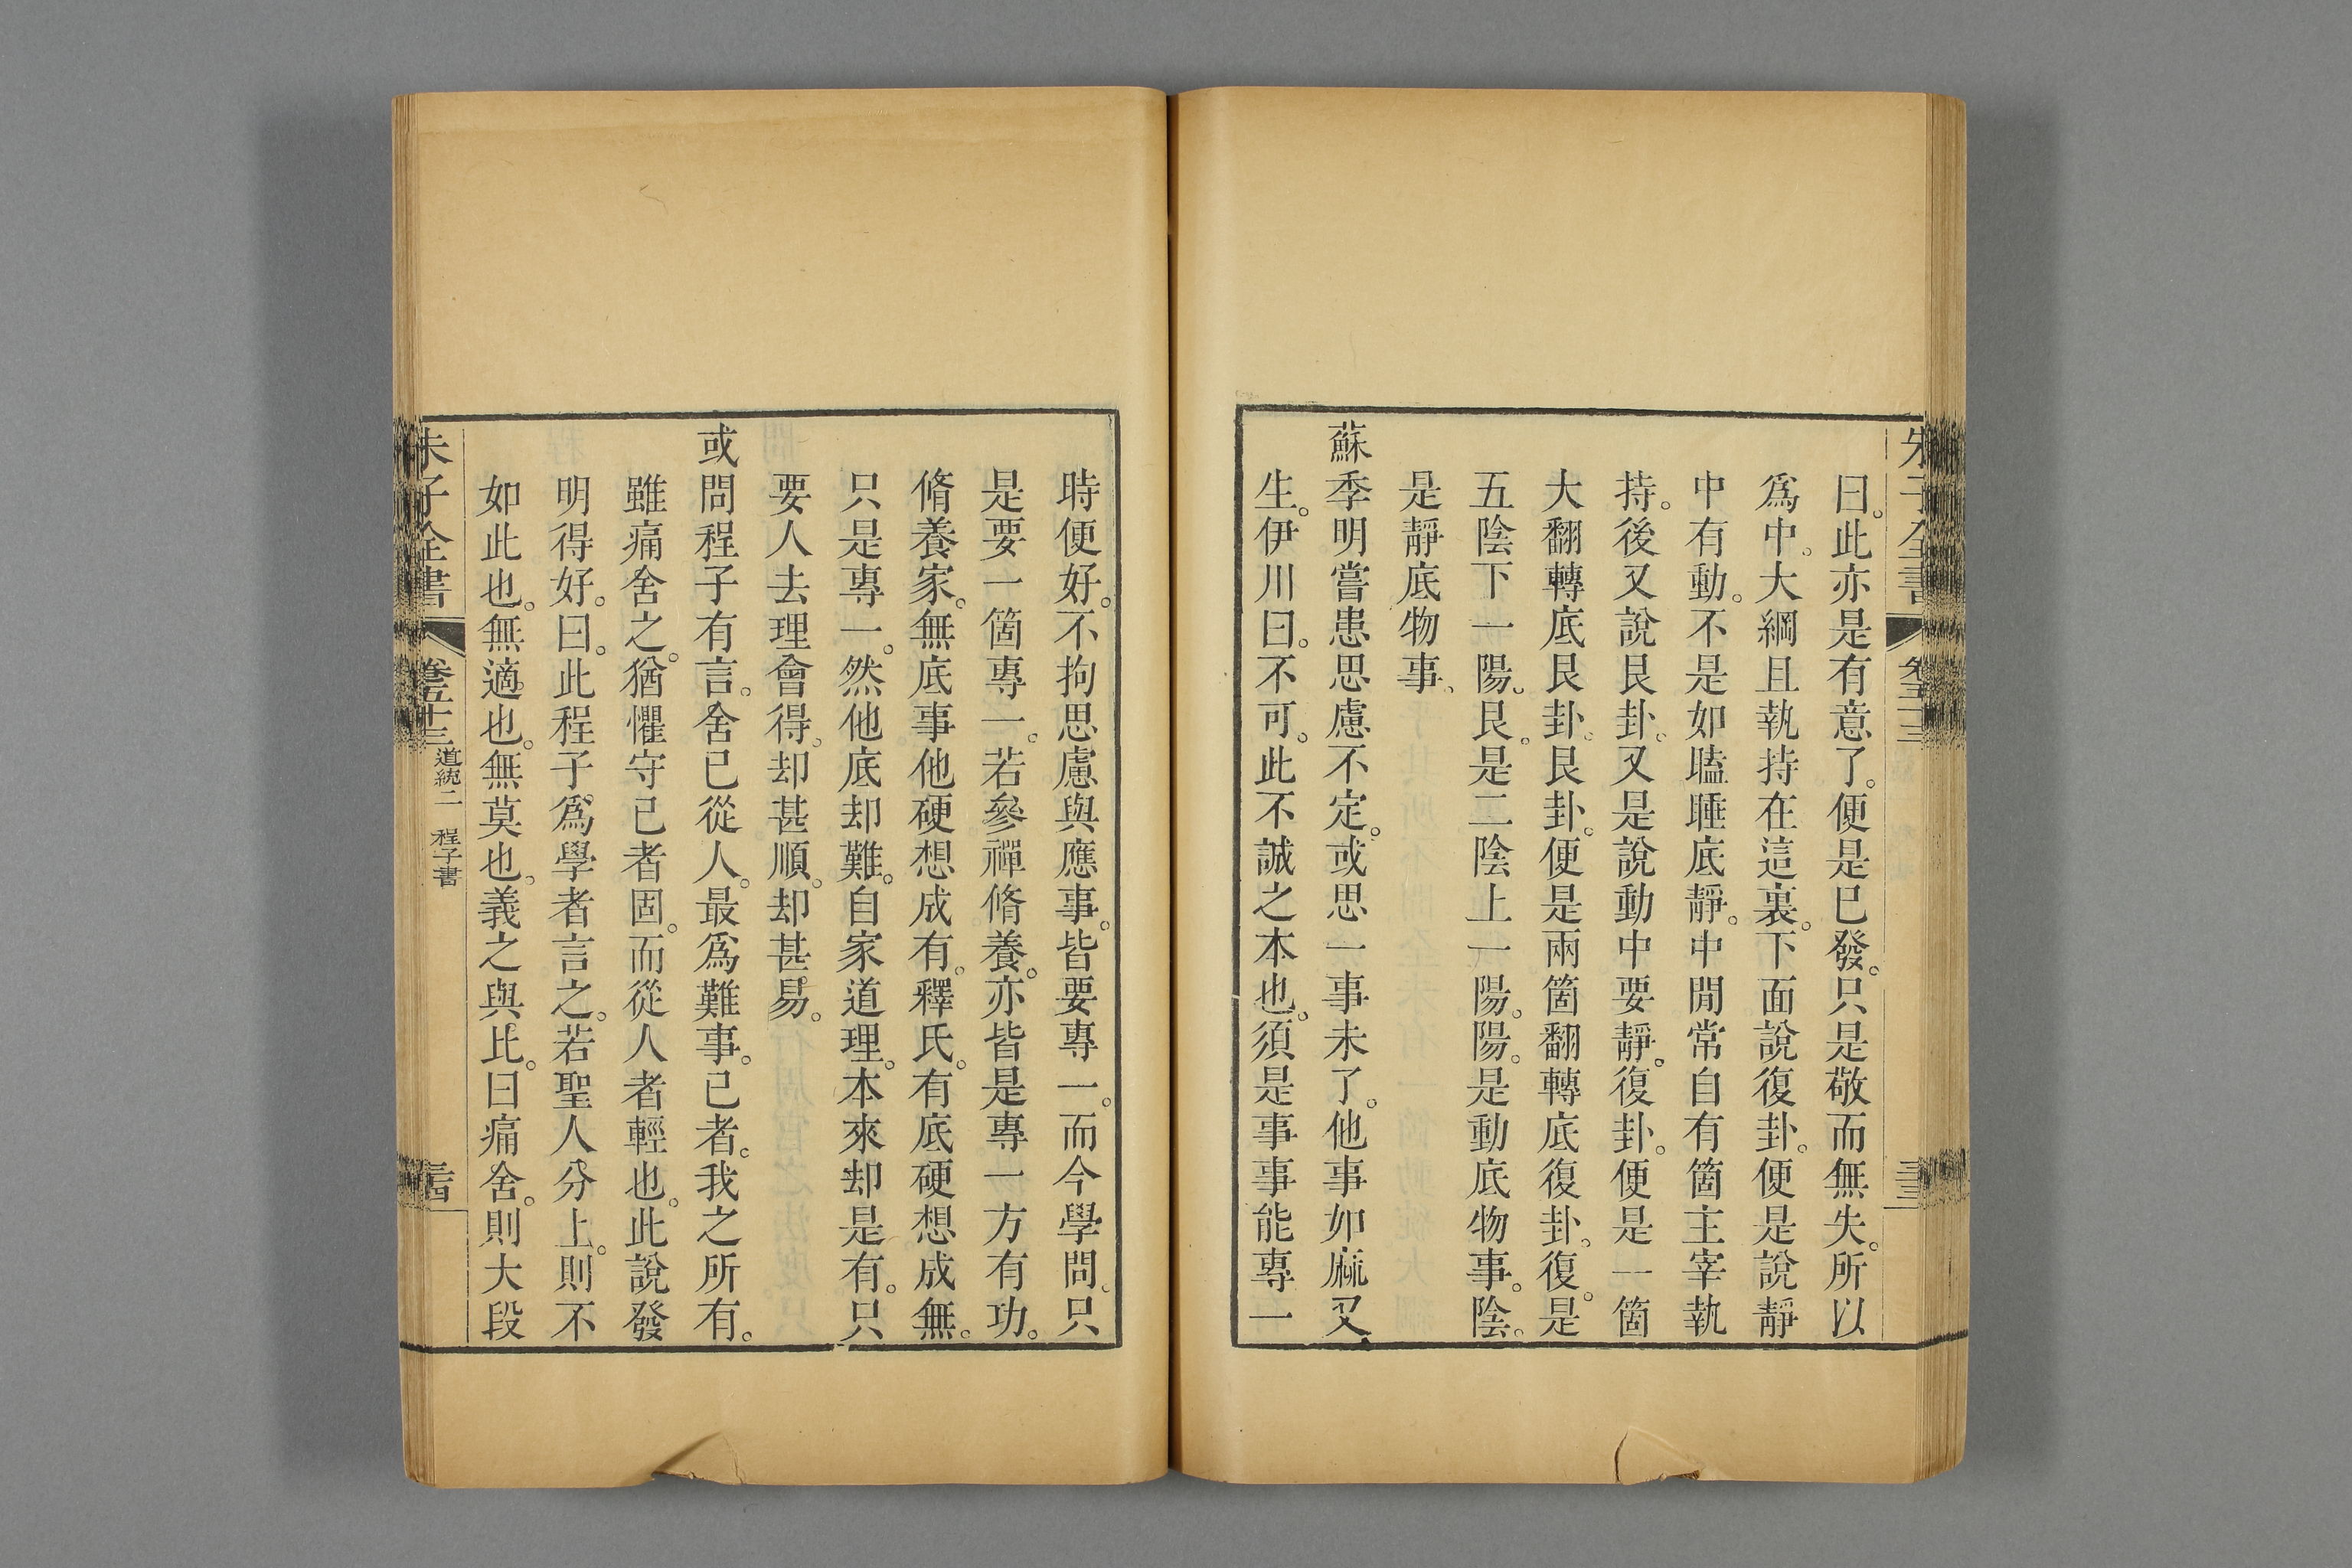 朱子全書
曰。此亦是有意了。便是已發。只是敬而無失。所以
爲中。大綱且執持在這裏。下面說復卦。便是說靜
中有動。不是如瞌睡底靜。中閒常自有箇主宰執
持。後又說艮卦。又是說動中要靜。復卦。便是一箇
大翻轉底艮卦。艮卦。便是兩箇翻轉底復卦。復。是
五陰下一陽。艮。是二陰上一陽。陽。是動底物事。陰。
是靜底物事。
蘇季明嘗患思慮不定。或思一事未了。他事如麻又
生。伊川曰。不可。此不誠之本也。須是事事能專一
時便好。不拘思慮與應事。皆要專一。而今學問。只
是要一箇專一。若參禪脩養。亦皆是專一方有功。
脩養家。無底事他硬想成有。釋氏。有底硬想成無。
只是專一。然他底却難。自家道理。本來却是有。只
要人去理會得。却甚順。却甚易。
或問程子有言。舍已從人。最爲難事。己者。我之所有。
雖痛舍之。猶懼守己者固。而從人者輕也。此說發
明得好。曰。此程子爲學者言之。若聖人分上。則不
如此也。無適也。無莫也。義之與比。曰痛舍。則大段
朱子全書 卷五十三 道統二 程子書 三四